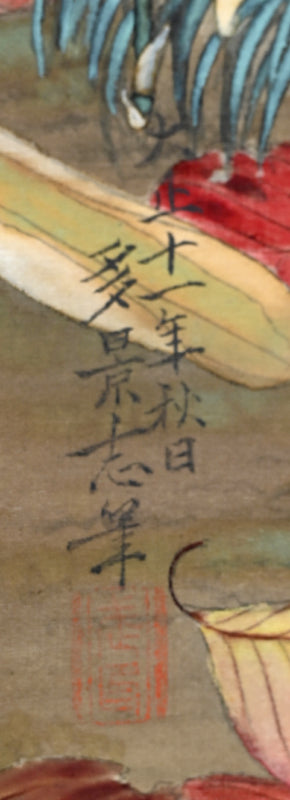 大正十一年秋日
多景志筆